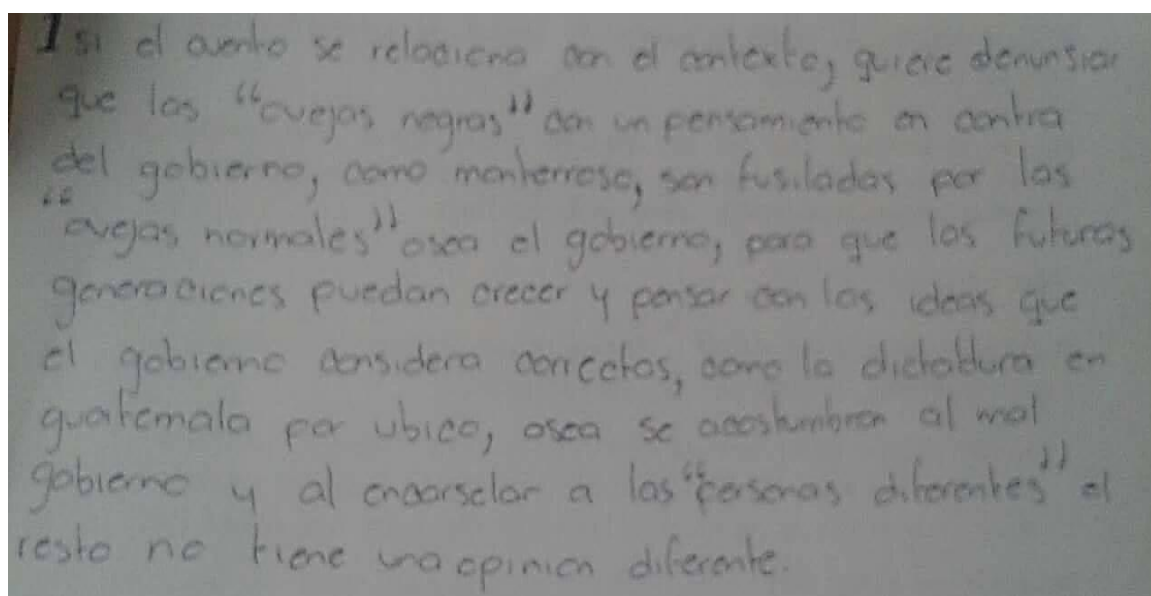 1 si el cuento se relaciona con el contexto, quiere denunsiar
que las "ovejas negras" con un pensamiento en contra
del gobierno, como monterroso, son fusiladas por las
"ovejas normales" osea el gobierno, para que las futuras
generaciones puedan crecer y pensar con las ideas que
el gobierno considera correctas, como la dictaddura en
guatemala por ubico, osea se acostumbran al mal
gobierno y al encarselar a las "personas diferentes" el
resto no tiene una opinion diferente.